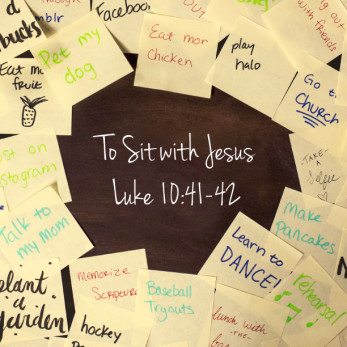 umblr
bucks
Facebook
OUT
out
with
friends
Pet my
dog
Eat mor
chicken
play
halo
Go to
CHURCH
Eat mo
fruit
To Sit with Jesus
Luke 10:41-42
-TAKE-
A
Selfie
ost on
stagram
Talk to
my mom
make
pancakes
Learn to
DANCE!
rehearsal
plant
a
garden
memorize
Scripture
Baseball
Tryouts
hockey
lunch with
-THE-